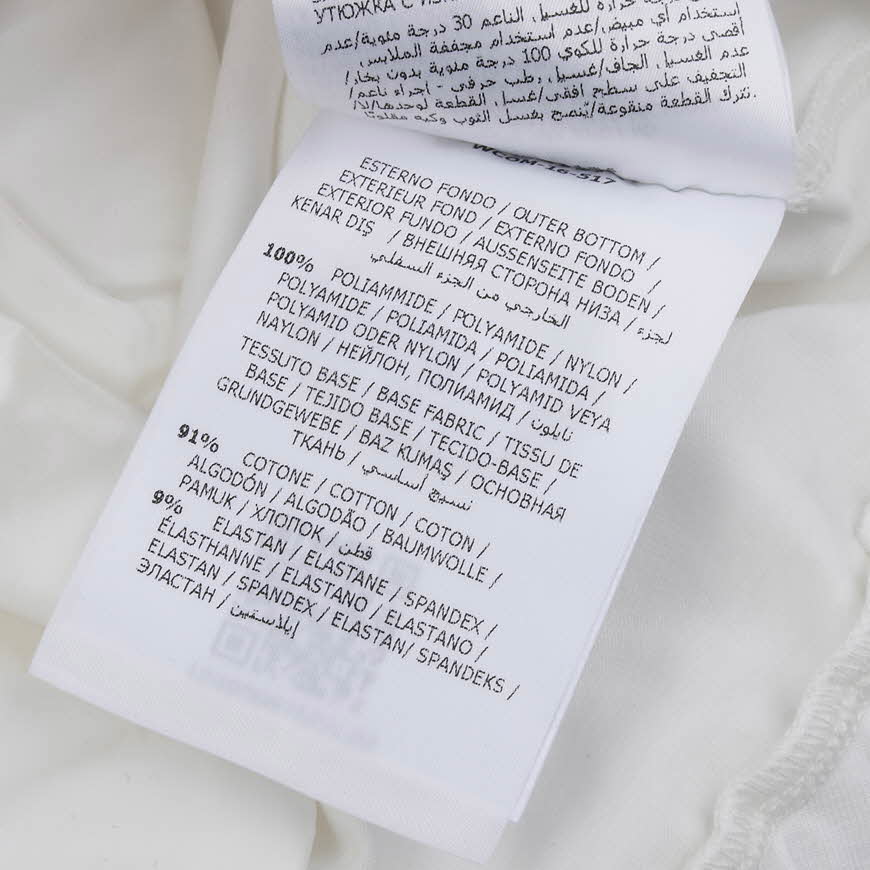 УТЮЖКА С
حرارة للغسيل، الناعم 30 درجة مئوية/عدم
استخدام أي مبيض/عدم استخدام مجففة الملابس،
أقصى درجة حرارة للكوي 100 درجة مئوية بدون بخار/
عدم الغسيل، الجاف/غسيل، رطب حرفي - اجراء ناعم/
التجفيف على سطح افقي/غسيل القطعة لوحدها/لا/
تترك القطعة منقوعة/يُنصح بغسل الثوب وكيه مقلوبًا
WCOM-16-517
ESTERNO FONDO / OUTER BOTTOM /
EXTERIEUR FOND / EXTERNO FONDO /
EXTERIOR FUNDO / AUSSENSEITE BODEN /
KENAR DIŞ / ВНЕШНЯЯ СТОРОНА НИЗА / لجزء
الخارجي من الجزء السفلي
100% POLIAMMIDE / POLYAMIDE / NYLON /
POLYAMIDE / POLIAMIDA / POLIAMIDA /
POLYAMID ODER NYLON / POLYAMID VEYA
NAYLON / НЕЙЛОН, ПОЛИАМИД / نايلون
TESSUTO BASE / BASE FABRIC / TISSU DE
BASE / TEJIDO BASE / TECIDO-BASE /
GRUNDGEWEBE / BAZ KUMAŞ / ОСНОВНАЯ
ТКАНЬ / نسيج أساسي
91% COTONE / COTTON / COTON /
ALGODÓN / ALGODÃO / BAUMWOLLE /
PAMUK / ХЛОПОК / قطن
9% ELASTAN / ELASTANE / SPANDEX /
ÉLASTHANNE / ELASTANO / ELASTANO /
ELASTAN / SPANDEX / ELASTAN/ SPANDEKS /
ЭЛАСТАН / إيلاستين